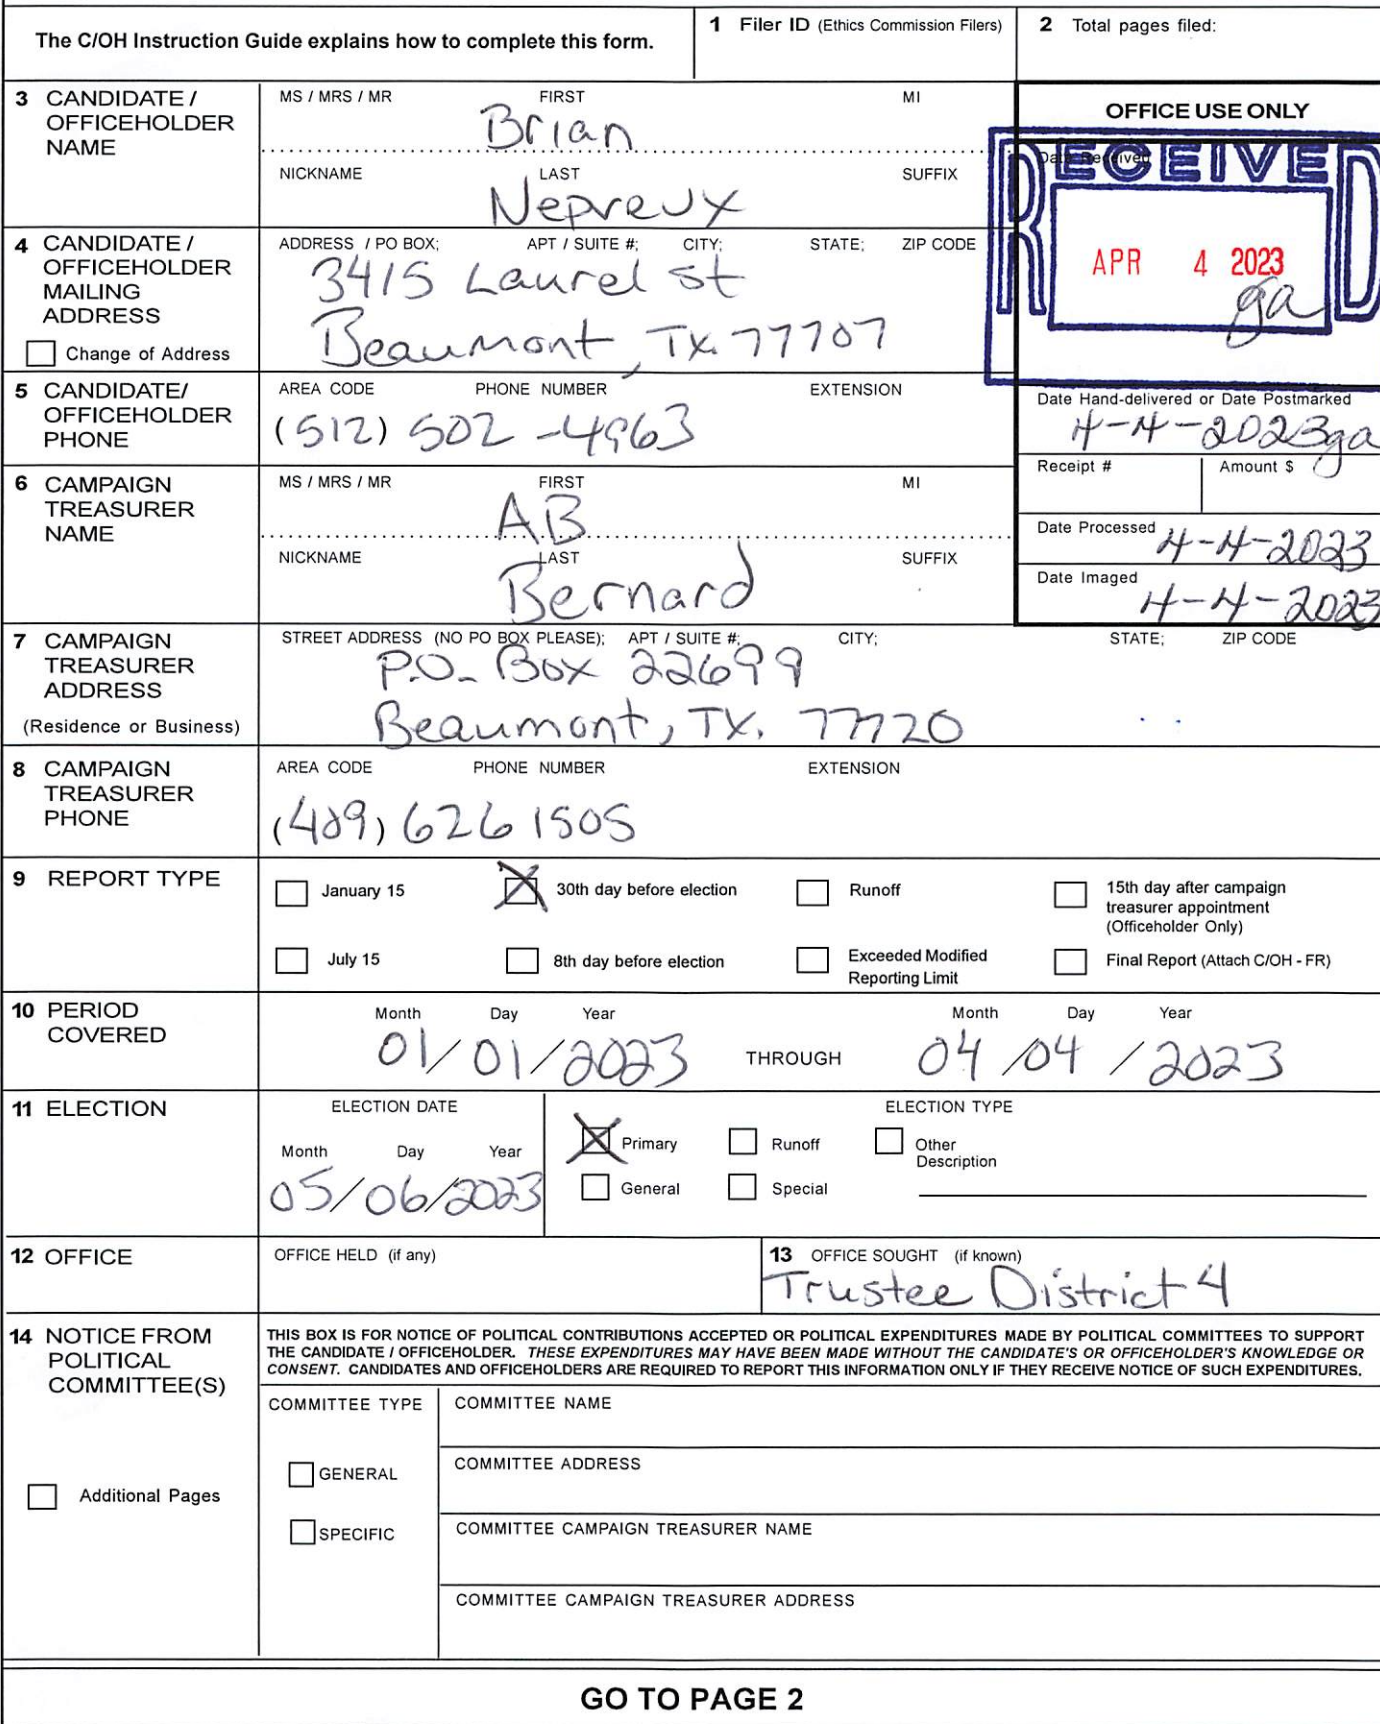 The C/OH Instruction Guide explains how to complete this form.
1 Filer ID (Ethics Commission Filers)
2 Total pages filed:
3 CANDIDATE / OFFICEHOLDER NAME
MS / MRS / MR FIRST MI
Brian
NICKNAME LAST SUFFIX
Nepveux
OFFICE USE ONLY
Date Received
RECEIVED
APR 4 2023
ga
4 CANDIDATE / OFFICEHOLDER MAILING ADDRESS
Change of Address
ADDRESS / PO BOX; APT / SUITE #; CITY; STATE; ZIP CODE
3415 Laurel St
Beaumont, TX. 77707
5 CANDIDATE/ OFFICEHOLDER PHONE
AREA CODE PHONE NUMBER EXTENSION
(512) 502-4963
Date Hand-delivered or Date Postmarked
4-4-2023 ga
Receipt # Amount $
6 CAMPAIGN TREASURER NAME
MS / MRS / MR FIRST MI
AB
NICKNAME LAST SUFFIX
Bernard
Date Processed 4-4-2023
Date Imaged 4-4-2023
7 CAMPAIGN TREASURER ADDRESS
(Residence or Business)
STREET ADDRESS (NO PO BOX PLEASE); APT / SUITE #; CITY; STATE; ZIP CODE
P.O. Box 22699
Beaumont, TX. 77720
8 CAMPAIGN TREASURER PHONE
AREA CODE PHONE NUMBER EXTENSION
(409) 626 1505
9 REPORT TYPE
January 15
30th day before election
Runoff
15th day after campaign treasurer appointment (Officeholder Only)
July 15
8th day before election
Exceeded Modified Reporting Limit
Final Report (Attach C/OH - FR)
10 PERIOD COVERED
Month Day Year
01/01/2023
THROUGH
Month Day Year
04/04/2023
11 ELECTION
ELECTION DATE
Month Day Year
05/06/2023
ELECTION TYPE
Primary
Runoff
Other Description
General
Special
12 OFFICE
OFFICE HELD (if any)
13 OFFICE SOUGHT (if known)
Trustee District 4
14 NOTICE FROM POLITICAL COMMITTEE(S)
THIS BOX IS FOR NOTICE OF POLITICAL CONTRIBUTIONS ACCEPTED OR POLITICAL EXPENDITURES MADE BY POLITICAL COMMITTEES TO SUPPORT
THE CANDIDATE / OFFICEHOLDER. THESE EXPENDITURES MAY HAVE BEEN MADE WITHOUT THE CANDIDATE'S OR OFFICEHOLDER'S KNOWLEDGE OR
CONSENT. CANDIDATES AND OFFICEHOLDERS ARE REQUIRED TO REPORT THIS INFORMATION ONLY IF THEY RECEIVE NOTICE OF SUCH EXPENDITURES.
Additional Pages
COMMITTEE TYPE
GENERAL
SPECIFIC
COMMITTEE NAME
COMMITTEE ADDRESS
COMMITTEE CAMPAIGN TREASURER NAME
COMMITTEE CAMPAIGN TREASURER ADDRESS
GO TO PAGE 2